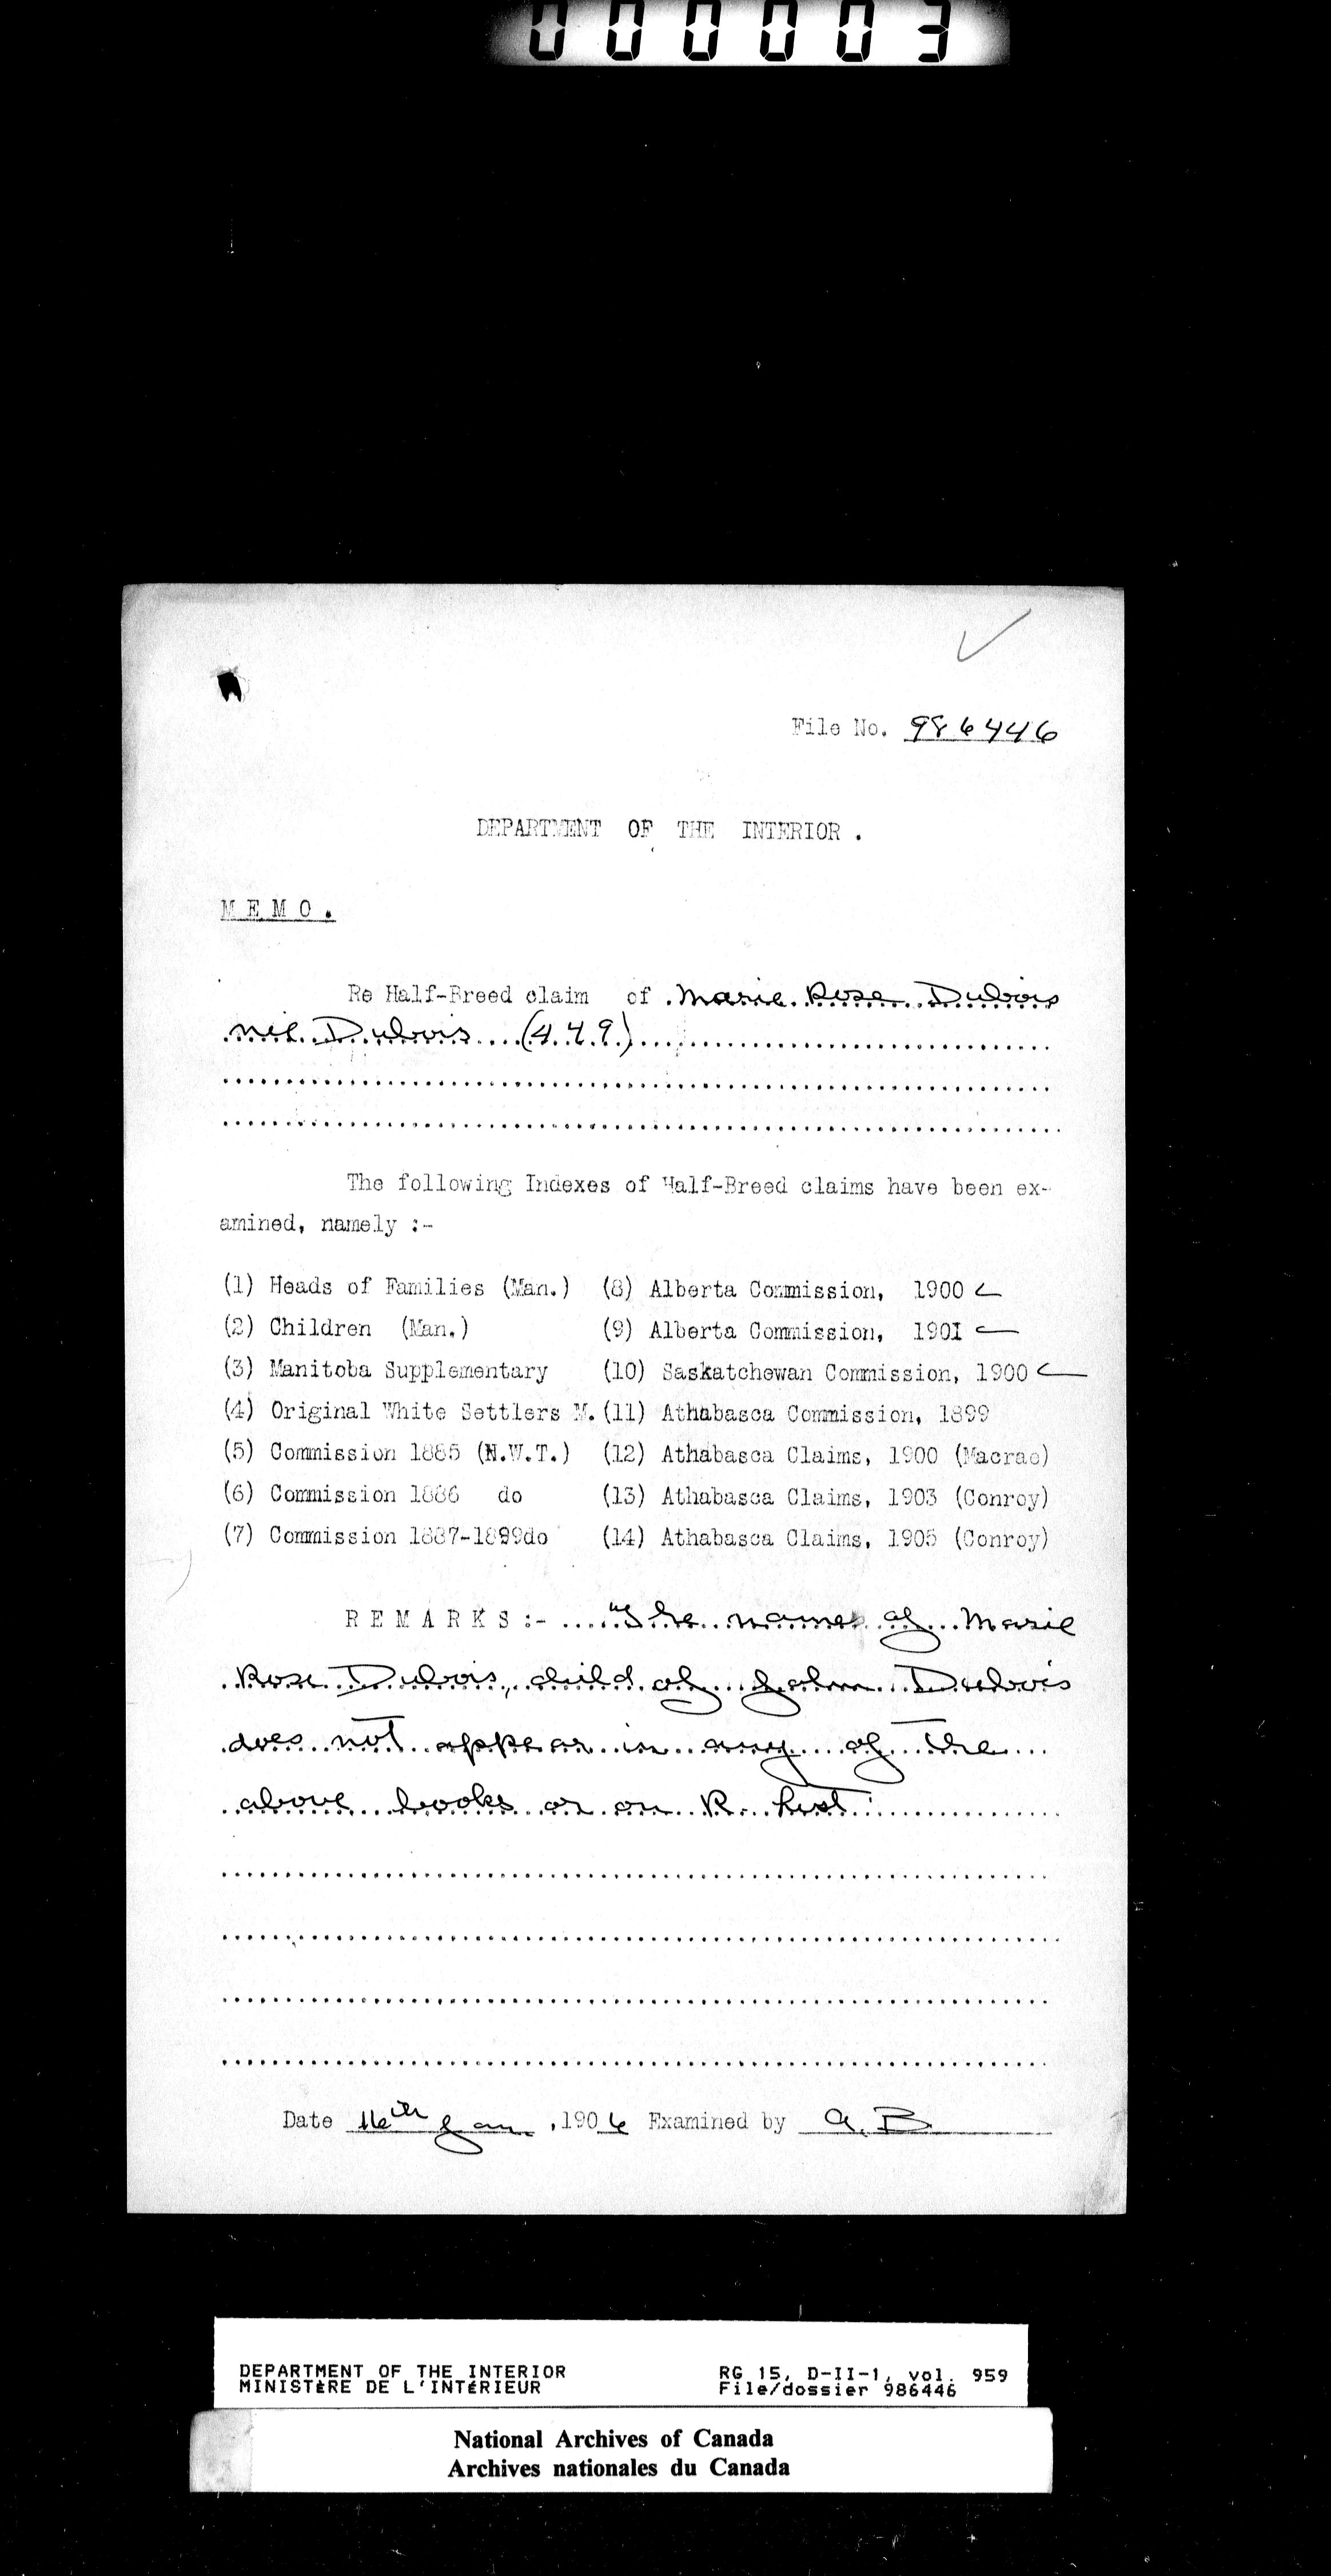 000003
File No. 986446
DEPARTMENT OF THE INTERIOR .
MEMO.
Re Half-Breed claim of Marie Rose Dubois
neé Dubois (449)
The following Indexes of Half-Breed claims have been ex-
amined, namely :-
(1) Heads of Families (Man.) (8) Alberta Commission, 1900
(2) Children (Man.) (9) Alberta Commission, 1901
(3) Manitoba Supplementary (10) Saskatchewan Commission, 1900
(4) Original White Settlers M. (11) Athabasca Commission, 1899
(5) Commission 1885 (N.W.T.) (12) Athabasca Claims, 1900 (Macrae)
(6) Commission 1886 do (13) Athabasca Claims, 1903 (Conroy)
(7) Commission 1887-1899do (14) Athabasca Claims, 1905 (Conroy)
REMARKS :- "The name of Marie
Rose Dubois, child of John Dubois
does not appear in any of the
above books or on R. List.
Date 16th Jan ,1906 Examined by A.B
DEPARTMENT OF THE INTERIOR
MINISTÈRE DE L'INTÉRIEUR
RG 15, D-II-1, vol. 959
File/dossier 986446
National Archives of Canada
Archives nationales du Canada